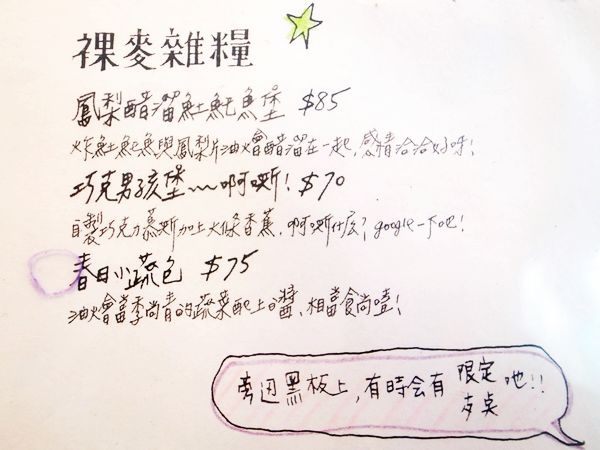 裸麥雜糧
鳳梨醋溜𩵚魠魚堡 $85
炸𩵚魠魚與鳳梨片油燴醋溜在一起,感情洽洽好呀!
巧克男孩堡~~啊嘶! $70
自製巧克力慕斯加上火條香蕉,啊嘶什麼?google一下吧!
春日小蔬色 $75
油燴當季尚青的蔬菜配上醬,相當食尚嘻!
旁边黑板上,有時会有限定
桌吔!!